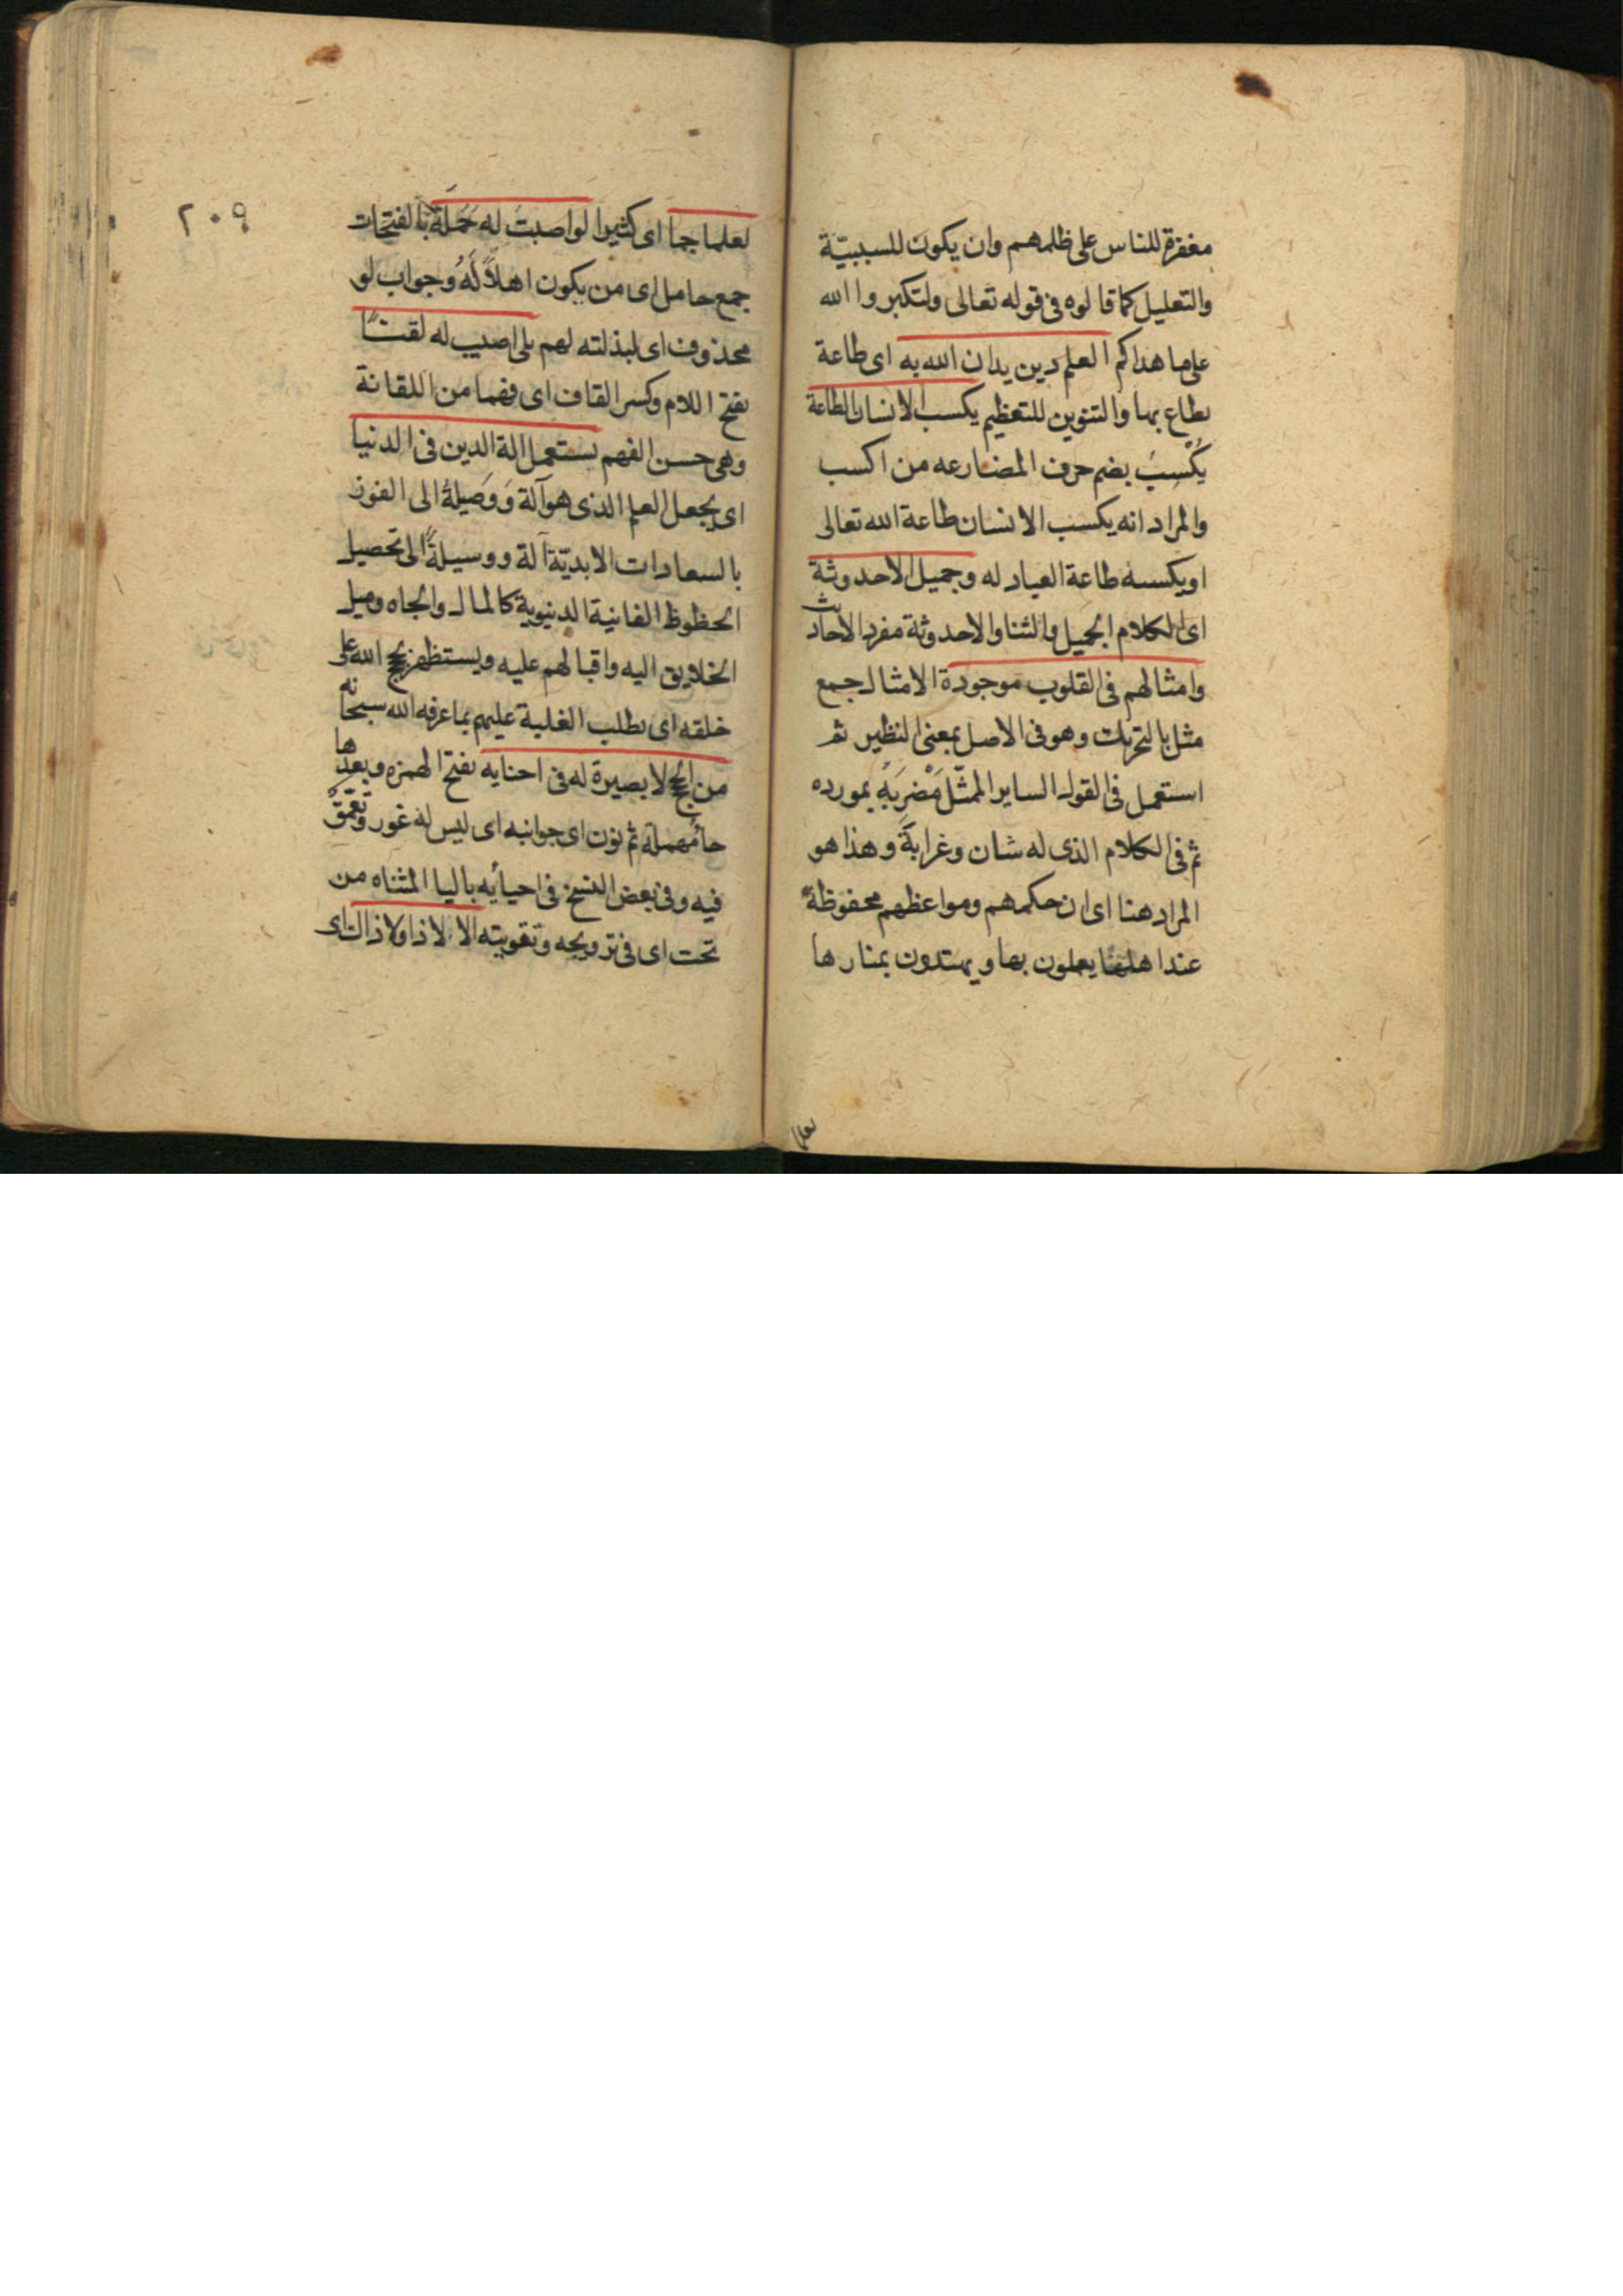 مغفرة للناس على ظلمهم وان يكون للسببيّة
والتعليل كما قالوه فى قوله تعالى ولتكبروا الله
على ما هداكم العلم دين يدان الله به اى طاعة
يطاع بها والتنوين للتعظيم يكسب الانسان الطاعة
يُكْسِبُ بضم حرف المضارعه من اكسب
والمراد انه يكسب الانسان طاعة الله تعالى
او يكسبه طاعة العباد له وجميل الاحدوثة
اى الكلام الجميل والثنا والاحدوثة مفرد الاحاديث
وامثالهم فى القلوب موجودة الامثال جمع
مثل بالتحريك وهو فى الاصل بمعنى النظير ثم
استعمل فى القول الساير الممثّل مَضْرِبَهُ بمورده
ثم فى الكلام الذى له شان وغرابة وهذا هو
المراد هنا اى ان حكمهم ومواعظهم محفوظة
عند اهلها يعملون بها ويهتدون بمنارها
٢٠٩
لعلما جما اى كثيرا لو اصبت له حَمَلَة بالفتحات
جمع حامل اى من يكون اهلاً لَهُ وجواب لو
محذوف اى لبذلته لهم بلى اصيب له لقنًا
بفتح اللام وكسر القاف اى فهما من اللقانة
وهى حسن الفهم يستعمل الة الدين فى الدنيا
اى يجعل العلم الذى هو آلة وَوَصيلة الى الفوز
بالسعادات الابديّة آلة ووسيلةً الى تحصيل
الحظوظ الفانية الدنيوية كالمال والجاه وميل
الخلايق اليه واقبالهم عليه ويستظهر بحجج الله على
خلقه اى يطلب الغلبة عليهم بما عرفه الله سبحانه
من الحجج لا بصيرة له فى احنايه بفتح الهمزه وبعدها
حا مهملة ثم نون اى جوانبه اى ليس له غور وتعمّق
فيه وفى بعض النسخ فى احيائه باليا المثناه من
تحت اى فى ترويجه وتقويته الا لا ذا ولا ذاك اى